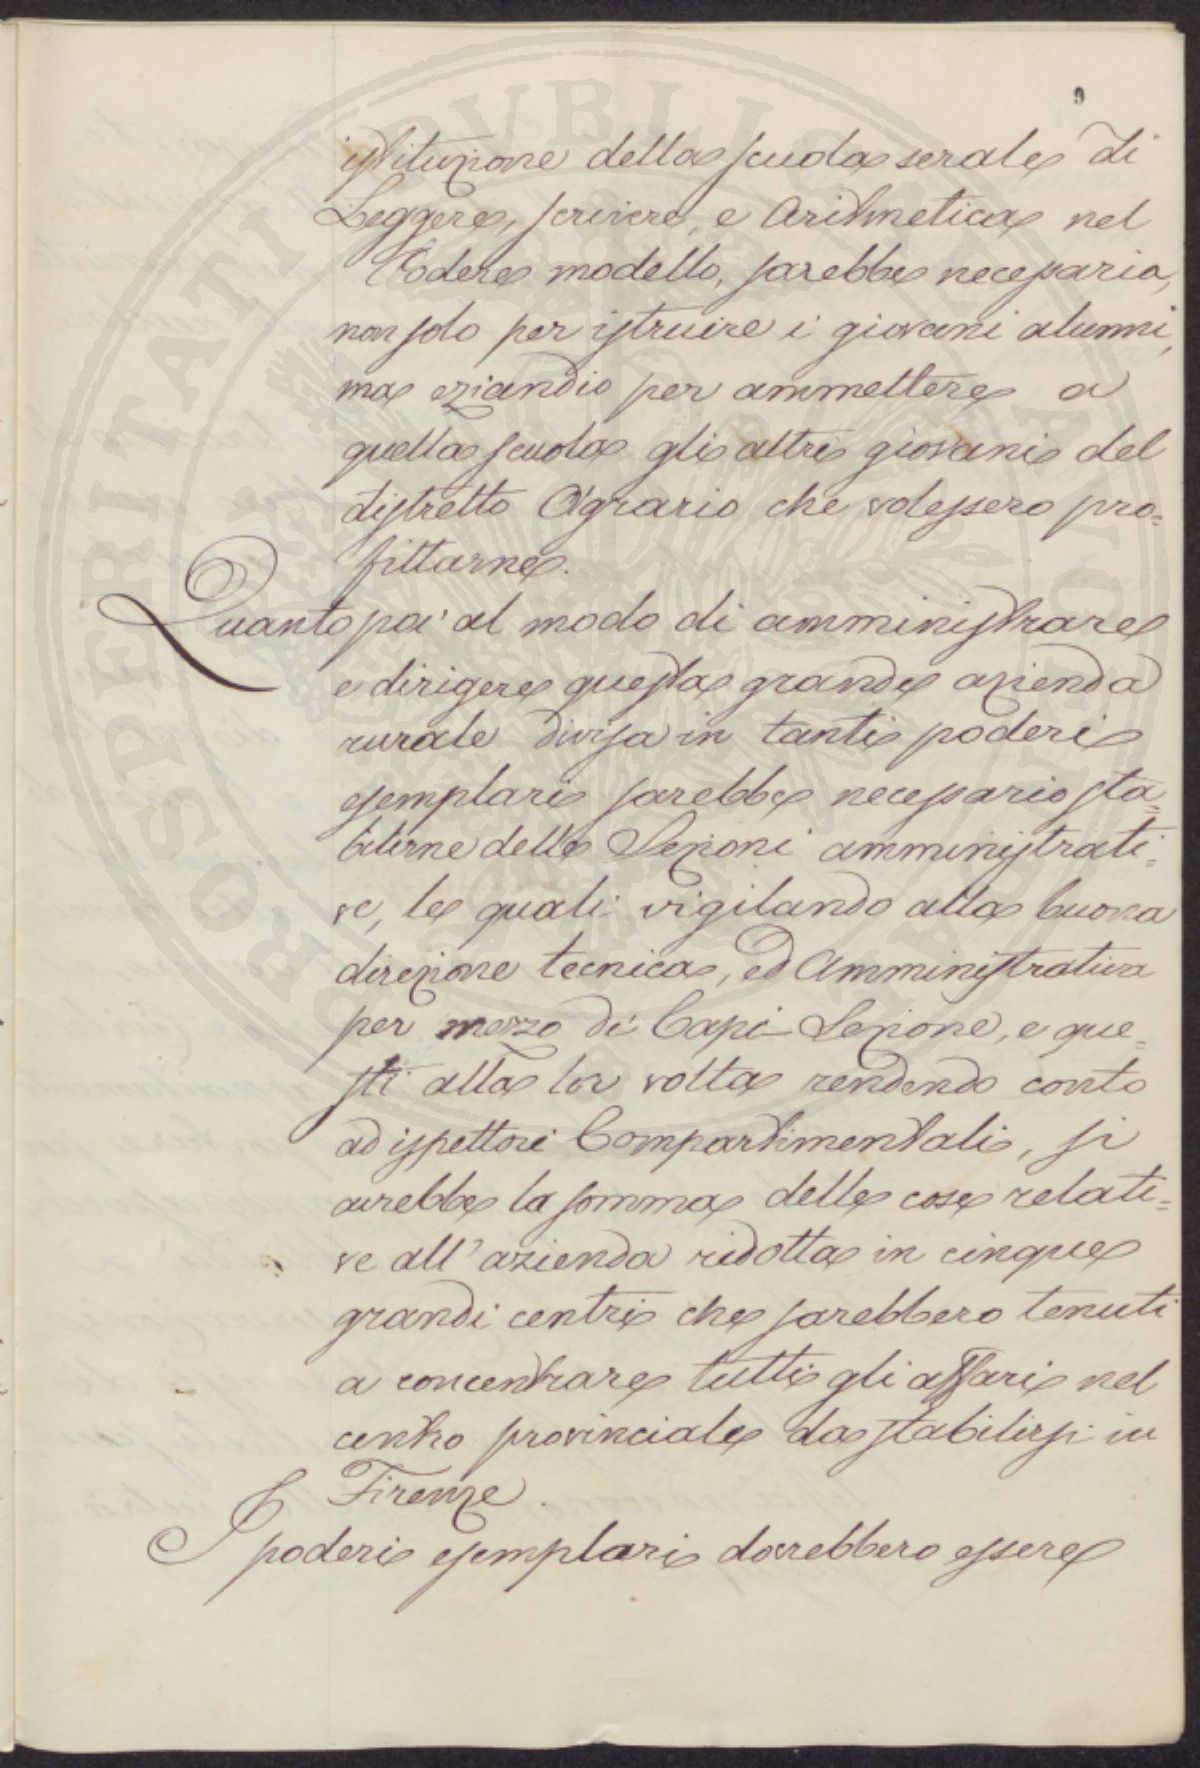 9
istituzione della scuola serale di
Leggere, scrivere, e Aritmetica nel
Podere modello, sarebbe necessaria,
non solo per istruire i giovani alunni,
ma eziandio per ammettere a
quella scuola gli altri giovani del
distretto Agrario che volessero pro=
fittarne.
Quanto poi al modo di amministrare
e dirigere questa grande azienda
rurale divisa in tanti poderi
esemplari sarebbe necessario sta=
bilirne delle Sezioni amministrati=
ve, le quali vigilando alla buona
direzione tecnica, ed Amministrativa
per mezzo di Capi-Sezione, e que=
sti alla lor volta rendendo conto
ad ispettori Compartimentali, si
avrebbe la somma delle cose relati=
ve all'azienda ridotta in cinque
grandi centri che sarebbero tenuti
a concentrare tutti gli affari nel
centro provinciale da stabilirsi in
Firenze.
I poderi esemplari dovrebbero essere
PROSPERITATI PUBLICAE AUGENDAE